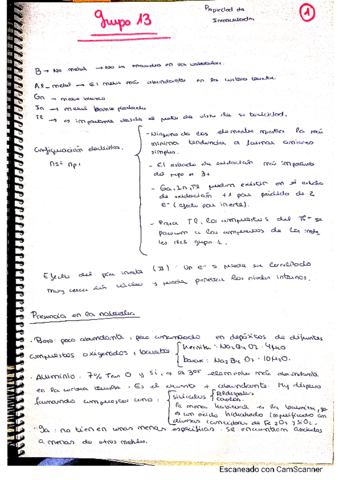 Grupo 13
Propiedad de
Inmaculada
1
B → No metal → No se encuentra en la naturaleza.
Al → metal → El metal más abundante en la corteza terrestre.
Ga → metal blanco
In → metal blanco plateado
Tl → es importante desde el punto de vista de su toxicidad.
Configuración electrónica
ns² np¹
- Ninguno de los elementos muestra la más
mínima tendencia a formar aniones
simples.
- El estado de oxidación más importante
del grupo es 3+
- Ga, In, Tl pueden existir en el estado
de oxidación +1 por pérdida de
e⁻ (efecto par inerte).
- Para Tl, los compuestos del Tl⁺ se
a los compuestos de los
les del grupo 1.
Efecto del par inerte: Un e⁻ s puede ser
muy cerca del núcleo y puede penetrar los niveles internos.
Presencia en la naturaleza.
- Boro: poco abundante, pero concentrado en depósitos de diferentes
compuestos oxigenados, boratos
kernita: Na₂B₄O₇ · 4H₂O
bórax: Na₂B₄O₇ · 10H₂O.
- Aluminio: 7% Tan O y Si, es 3er elemento más abundante
en la corteza terrestre. Es el + abundante. Muy disperso
formando compuestos como:
silicatos
feldespatos
la mena habitual es la bauxita,
es un óxido hidratado
diversas cantidades de Fe₂O₃ y SiO₂.
- Ga: no tienen unas menas específicas. Se encuentran asociados
a menas de otros metales.
Escaneado con CamScanner